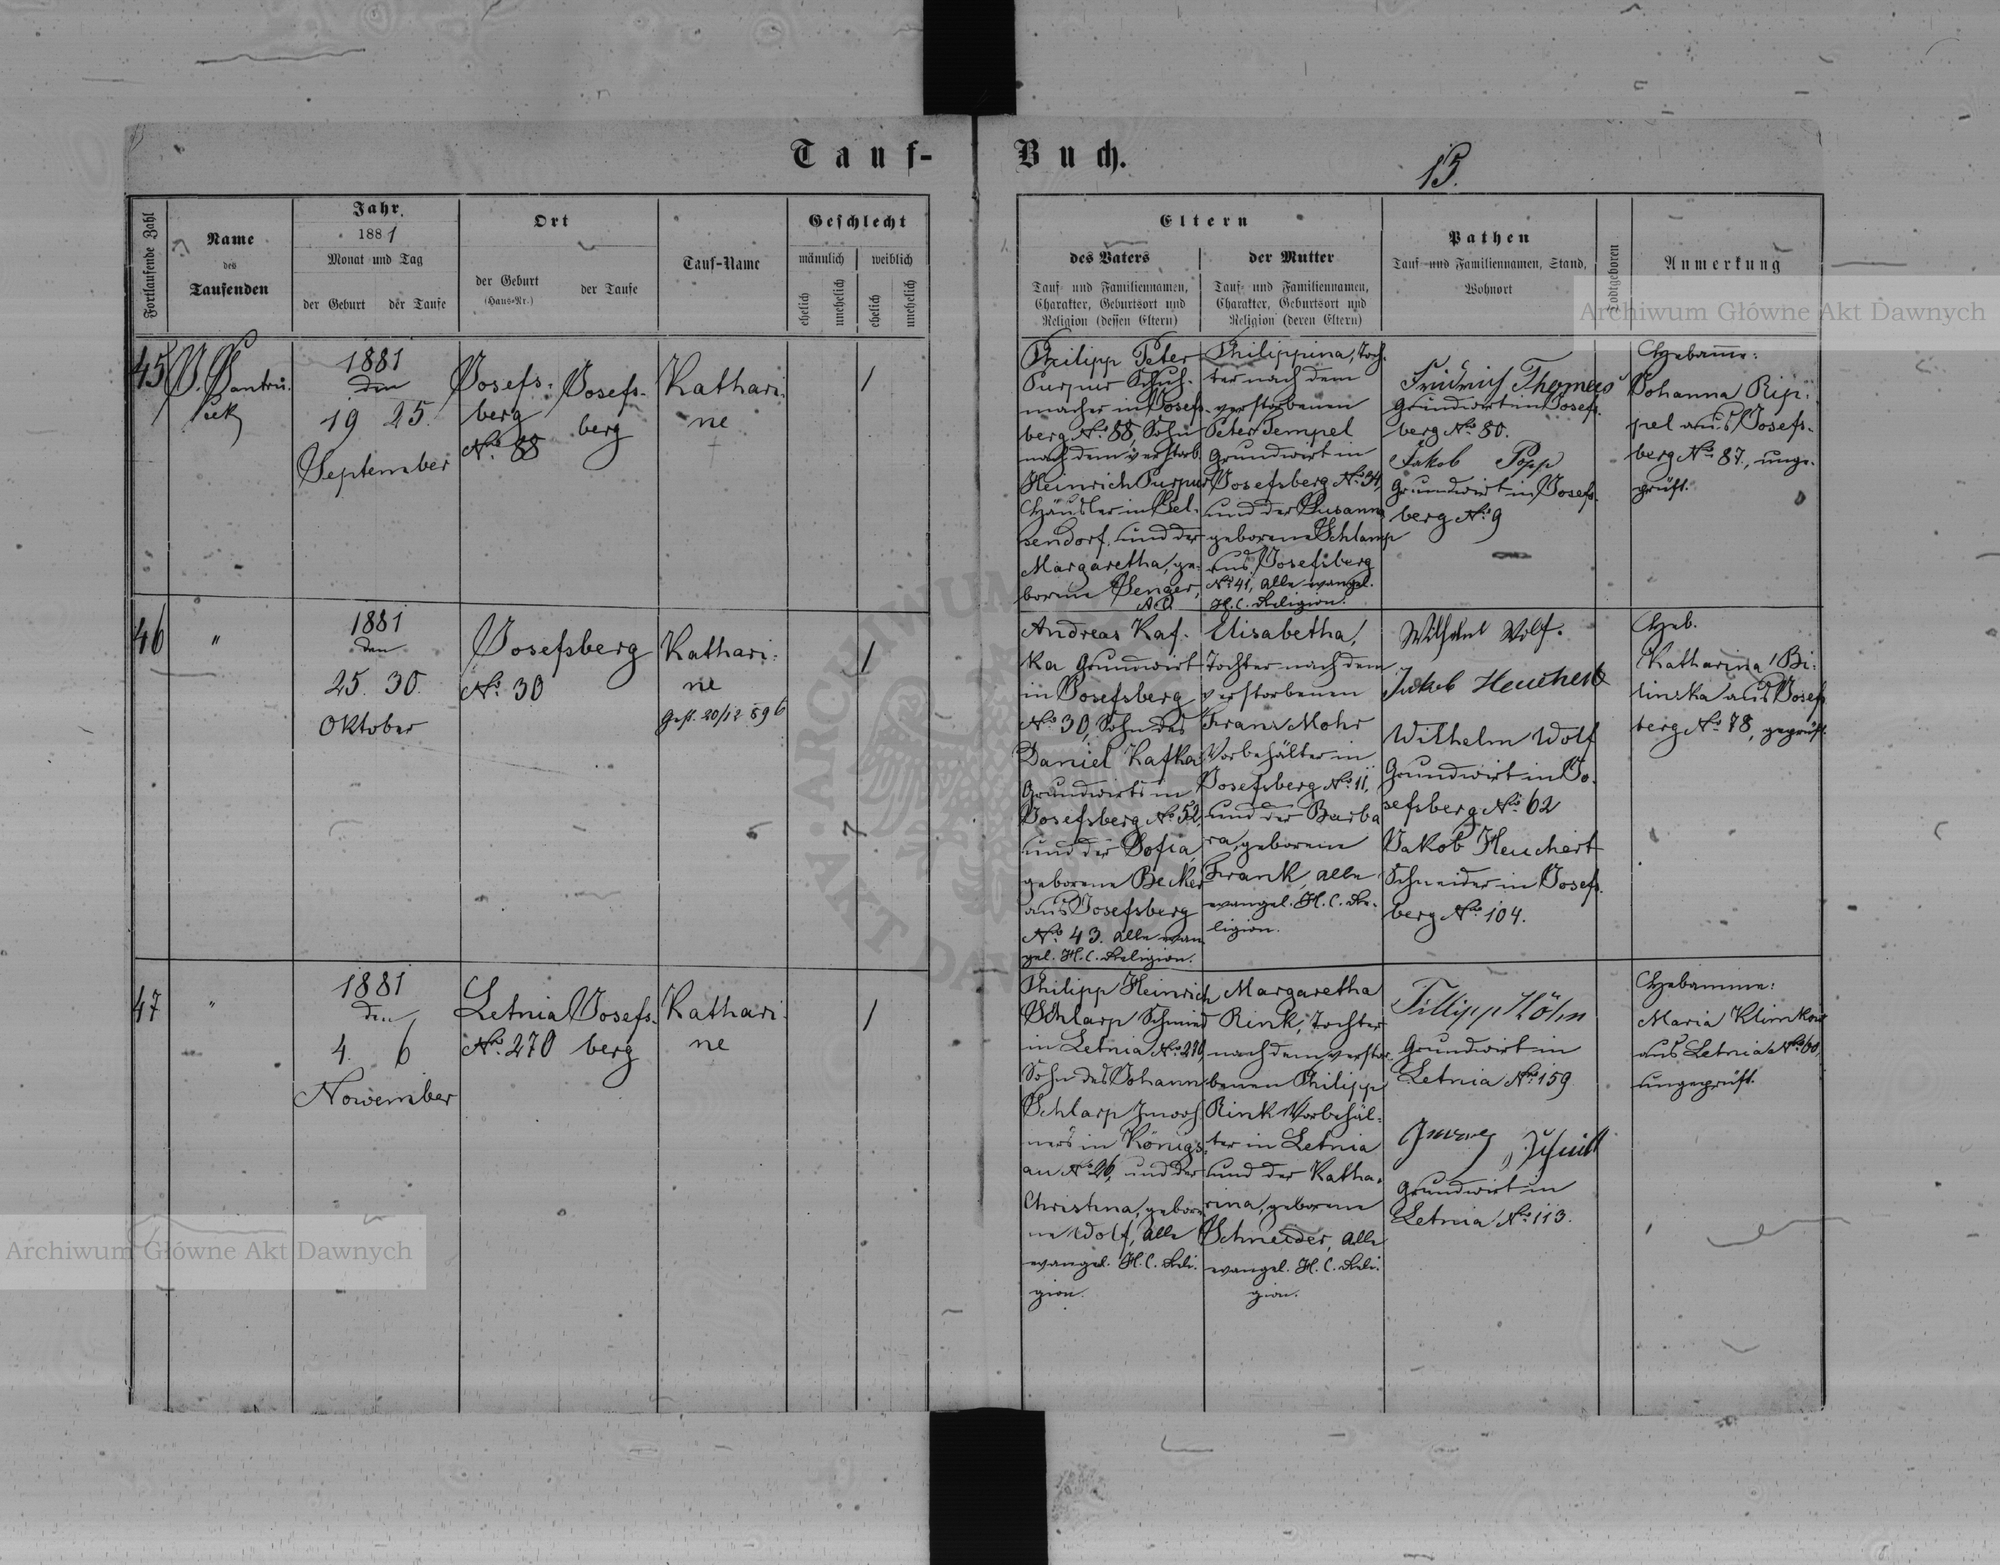 Tauf-Buch.
13.
Fortlaufende Zahl
Name
des
Taufenden
Jahr
1881
Monat und Tag
der Geburt
der Taufe
Ort
der Geburt
(Haus-Nr.)
der Taufe
Tauf-Name
Geschlecht
männlich
weiblich
ehelich
unehelich
ehelich
unehelich
Eltern
des Vaters
Tauf- und Familiennamen,
Charakter, Geburtsort und
Religion (dessen Eltern)
der Mutter
Tauf- und Familiennamen,
Charakter, Geburtsort und
Religion (deren Eltern)
Pathen
Tauf- und Familiennamen, Stand,
Wohnort
Todtgeboren
Anmerkung
45
1881
den
19 25.
September
Josefs-
berg
No. 88
Josefs-
berg
Kathari-
ne
1
Philipp Peter
Purpur Schuh-
macher in Josefs-
berg No. 88, Sohn
nach dem verstorb.
Heinrich Purpur
Häusler in
und der
Margaretha, ge-
borene Senger,
A. C.
Philippina, Toch-
ter nach dem
verstorbenen
Peter Tempel
Grundwirt in
Josefsberg No. 34,
und der Susanna
geborene Schlamp
aus Josefsberg
No. 41, alle evangel.
H. C. Religion.
Fridrich Thomas
Grundwirt in Josefs-
berg No. 80.
Jakob Popp
Grundwirt in Josefs-
berg No. 9
Hebamme:
Johanna Rip-
pel aus Josefs-
berg No. 87., unge-
prüft.
46
"
1881
den
25. 30.
Oktober
Josefsberg
No. 30
Kathari-
ne
Gest. 20/12 896
1
Andreas Kaf-
ka Grundwirt
in Josefsberg
No. 30, Sohn des
Daniel Kafka
Grundwirts in
Josefsberg No. 52,
und der Sofia,
geborene Becker
aus Josefsberg
No. 43. alle evan-
gel. H. C. Religion.
Elisabetha,
Tochter nach dem
verstorbenen
Franz Mohr
Vorbehälter in
Josefsberg No. 11,
und der Barba
ra, geborene
Frank, alle
evangel. H. C. Re-
ligion.
Wilhelm Wolf.
Jakob Heuchert
Wilhelm Wolf
Grundwirt in Jo-
sefsberg No. 62
Jakob Heuchert
Schneider in Josefs-
berg No. 104.
Heb.
Katharina Bi-
linska aus Josefs-
berg No. 78, geprüft.
47
"
1881
den
4. 6
November
Letnia
No. 270
Josefs-
berg
Kathari-
ne
1
Philipp Heinrich
Schlarp Schmied
in Letnia No. 270,
Sohn des Johann
Schlarp Inwoh-
ners in Königs-
au No. 26, und der
Christina, gebore-
ne Wolf, alle
evangel. H. C. Reli-
gion.
Margaretha
Rink, Tochter
nach dem verstor-
benen Philipp
Rink Vorbehäl-
ter in Letnia
und der Katha-
rina, geborene
Schneider, alle
evangel. H. C. Reli-
gion.
Fillipp Köhn
Grundwirt in
Letnia No. 159
Grundwirt in
Letnia No. 113.
Hebamme:
Maria Klimkow
aus Letnia No. 60,
ungeprüft.
Archiwum Główne Akt Dawnych
Archiwum Główne Akt Dawnych